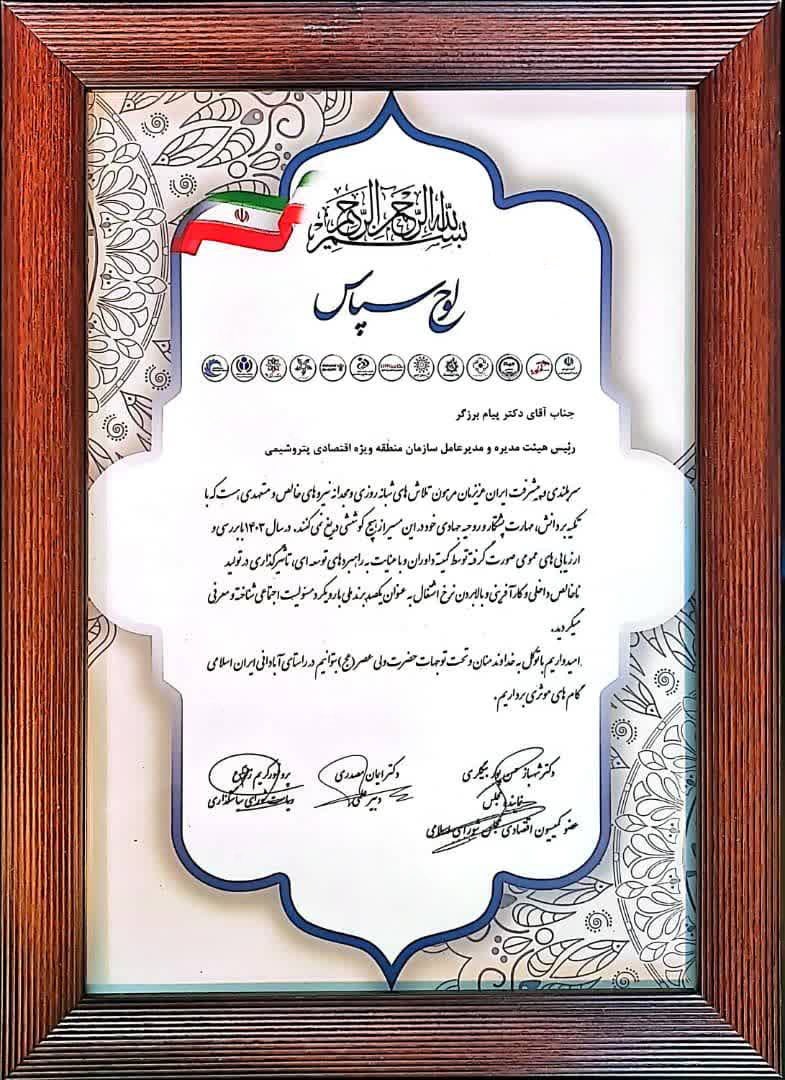 بسم الله الرحمن الرحیم
لوح سپاس
جناب آقای دکتر پیام برزگر
رئیس هیئت مدیره و مدیرعامل سازمان منطقه ویژه اقتصادی پتروشیمی
سربلندی و پیشرفت ایران عزیزمان مرهون تلاش های شبانه روزی و مجدانه نیروهای خالص و متعهدی است که با
تکیه بر دانش، مهارت پشتکار و روحیه جهادی خود در این مسیر از هیچ کوششی دریغ نمی کنند. در سال ۱۴۰۳ با بررسی و
ارزیابی های عمومی صورت گرفته توسط کمیته داوران و با عنایت به راهبردهای توسعه ای، تاثیرگذاری در تولید
ناخالص داخلی و کارآفرینی و بالابردن نرخ اشتغال به عنوان یکصد برند ملی با رویکرد مسئولیت اجتماعی شناخته و معرفی
میگردید.
امیدواریم با توکل به خداوند منان و تحت توجهات حضرت ولی عصر (عج) بتوانیم در راستای آبادانی ایران اسلامی
گام های موثری برداریم.
دکتر شهباز حسن پور بیگلری
نماینده مجلس
عضو کمیسیون اقتصادی مجلس شورای اسلامی
دکتر ایمان صفدری
دبیر علمی
پروفسور کریم
ریاست شورای سیاستگذاری